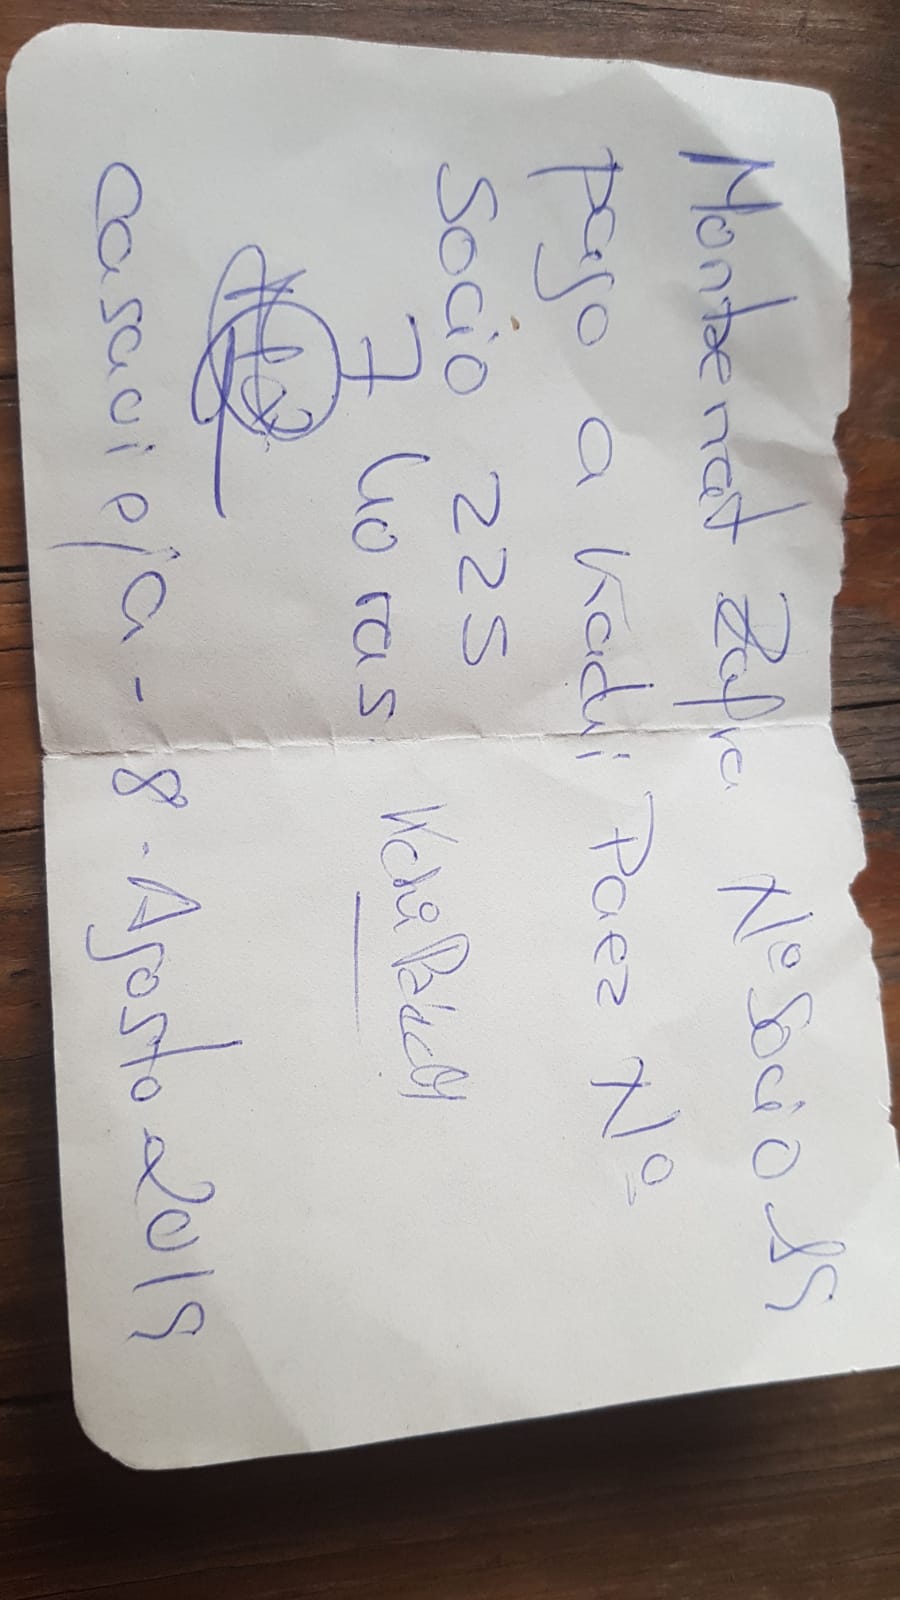 Montserrat Zafra Nº Socio
pago a Kadi Paez Nº
Socio 225
7 Horas
Casavieja - 8 - Agosto - 2019